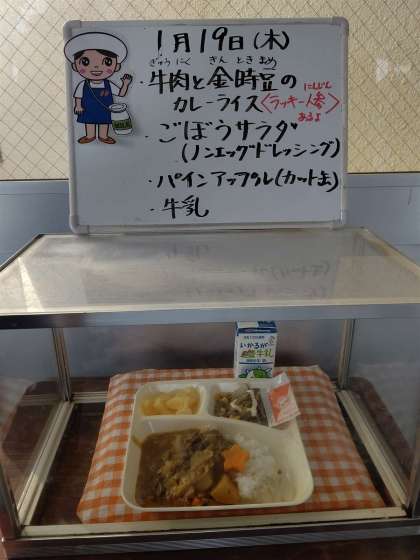 1月19日(木)
ぎゅうにく きんときまめ
・牛肉と金時豆の
にんじん
カレーライス〈ラッキー人参〉
あるよ
・ごぼうサラダ♥
(ノンエッグドレッシング)
・パインアップル(カット缶)
・牛乳
MILK
いかるが
牛乳